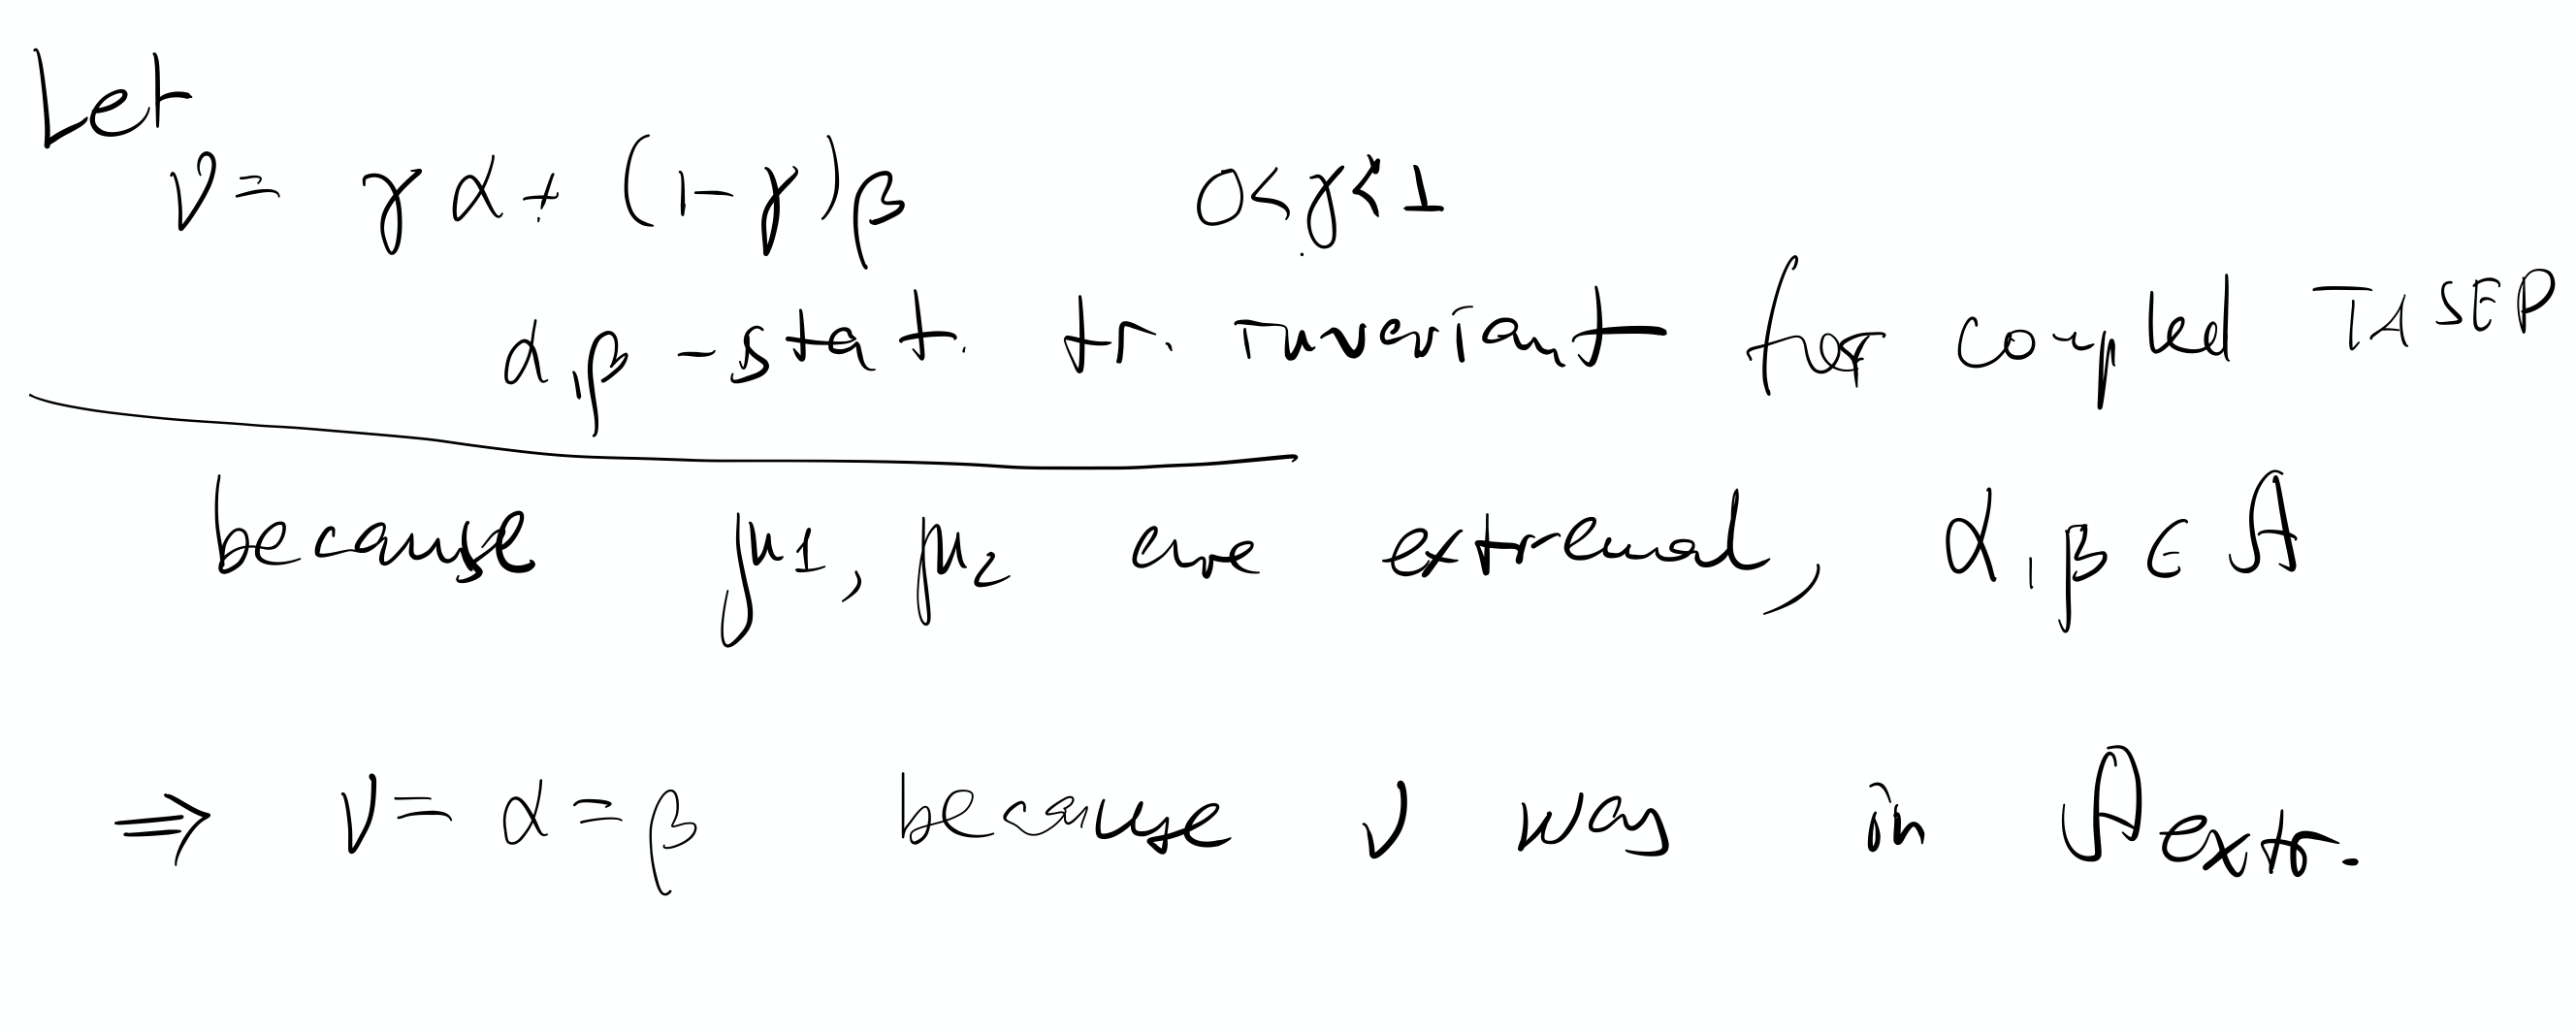 Let
ν = γ α + (1-γ) β 0<γ<1
α, β - stat. tr. invariant for coupled TASEP
because μ1, μ2 are extremal, α, β ∈ A
⇒ ν = α = β because ν was in A extr.